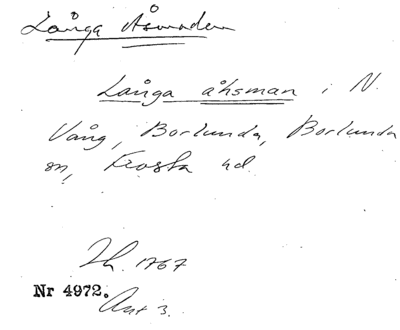 Långa Åsmaden
Långa åhsman i N.
Vång, Borlunda, Borlunda
sn, Frosta hd
1767
Nr 4972.
Akt 3.